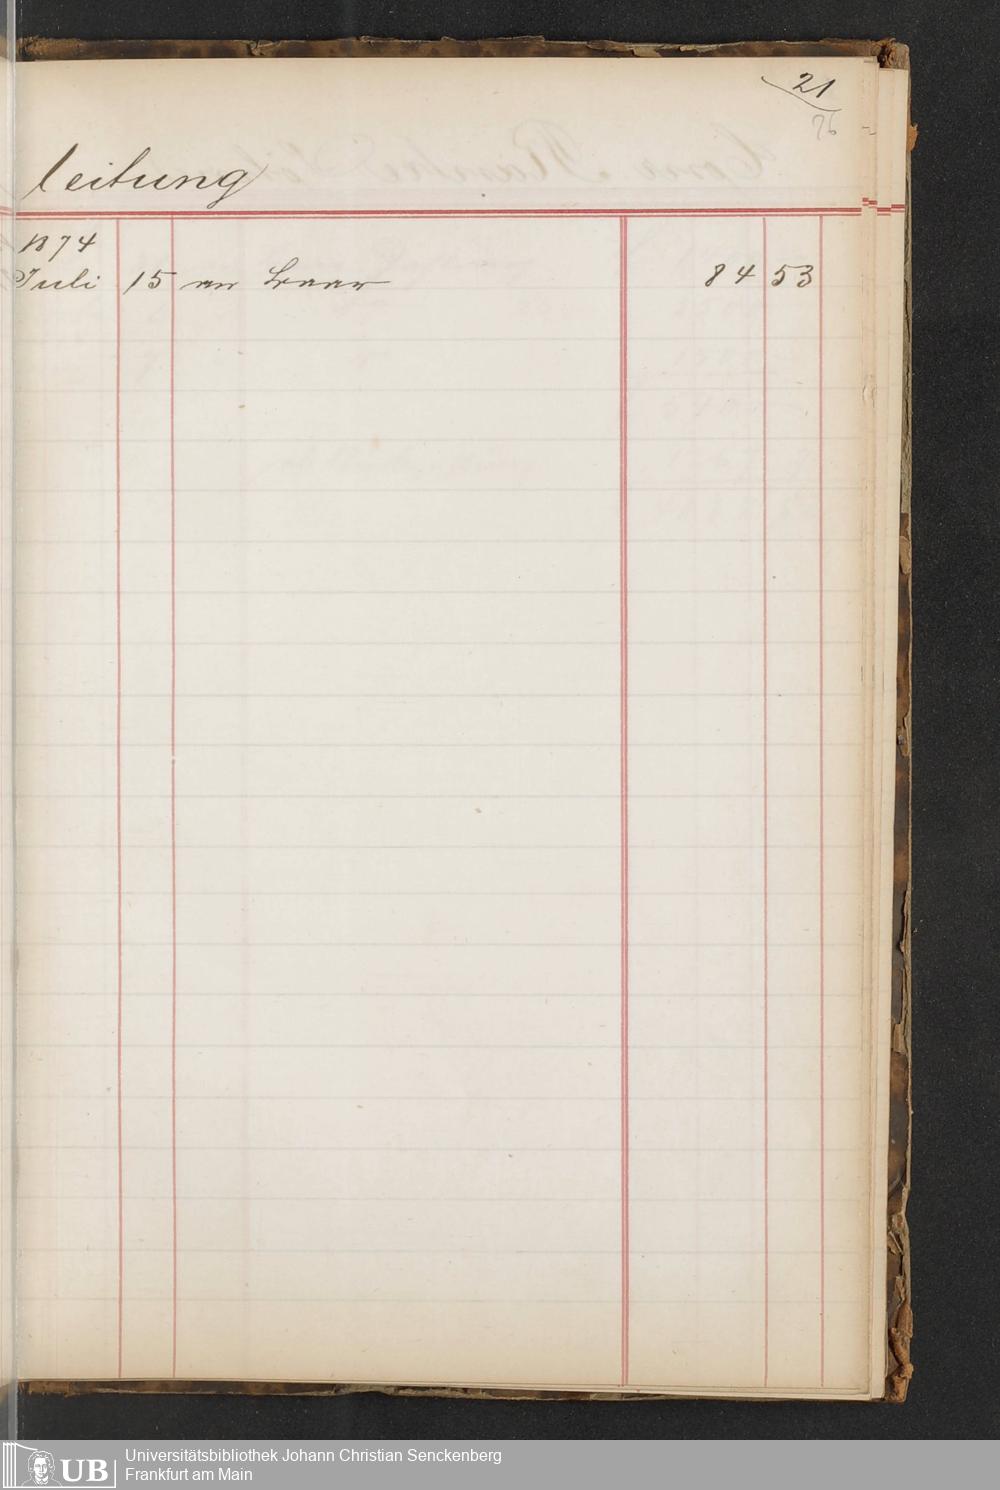 21
76
leitung
1874
Juli 15 an baar 84 53
UB
Universitätsbibliothek Johann Christian Senckenberg
Frankfurt am Main